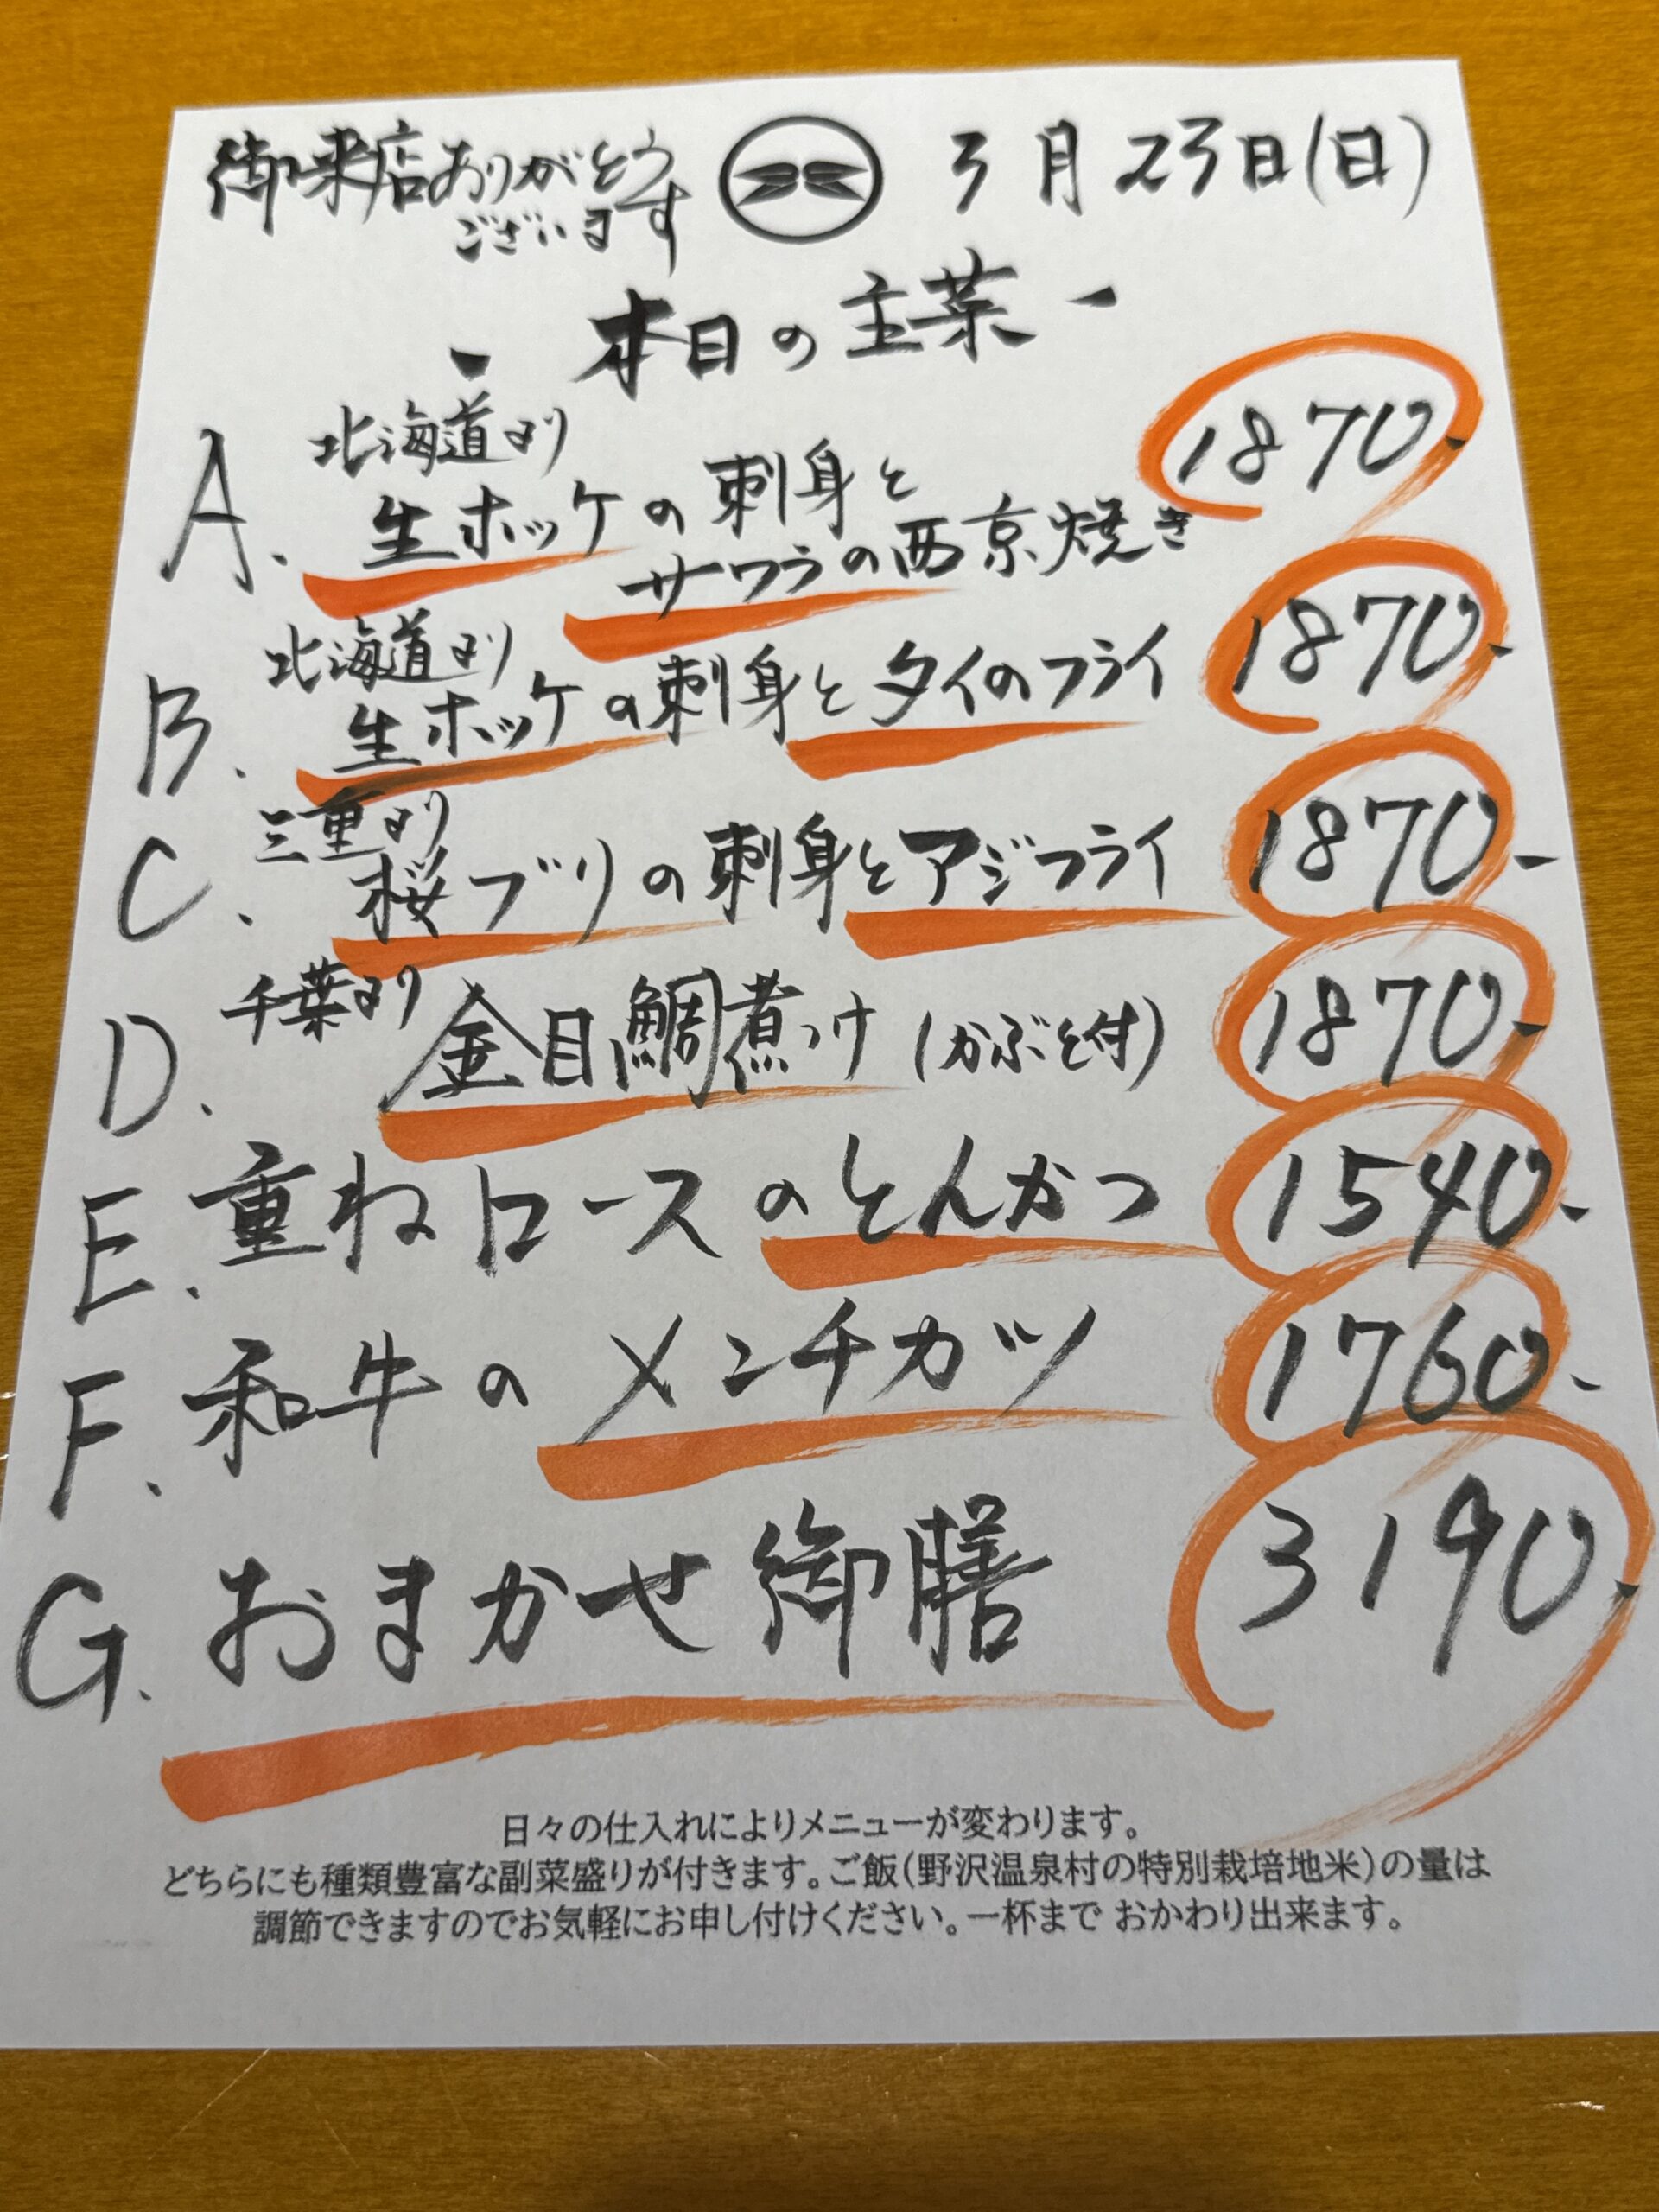 御来店ありがとう
ございます
3月23日(日)
- 本日の主菜 -
A. 北海道より
生ホッケの刺身と
サワラの西京焼き
1870-
B. 北海道より
生ホッケの刺身とタイのフライ
1870-
C. 三重より
桜ブリの刺身とアジフライ
1870-
D. 千葉より
金目鯛煮つけ(かぶと付)
1870-
E. 重ねロースのとんかつ 1540-
F. 和牛のメンチカツ 1760-
G. おまかせ御膳 3190-
日々の仕入れによりメニューが変わります。
どちらにも種類豊富な副菜盛りが付きます。ご飯(野沢温泉村の特別栽培地米)の量は
調節できますのでお気軽にお申し付けください。一杯まで おかわり出来ます。